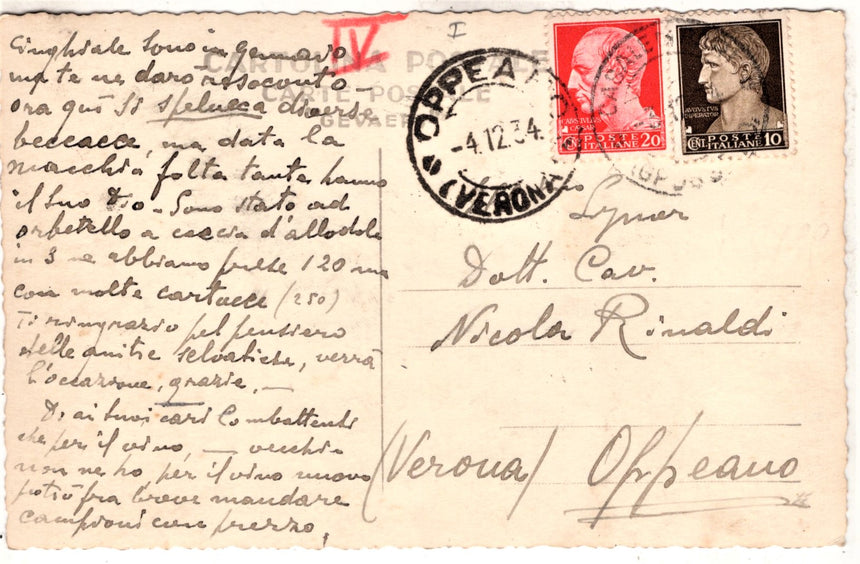 IV
I
CARTOLINA POSTALE
CARTE POSTALE
GEVAERT
Cinghiale sono in gennaio
ma te ne daro resoconto -
ora qui si spelucca diverse
beccacce, ma, data la
macchia folta tanta hanno
il suo Dio - Sono stato ad
orbetello a caccia d'allodole
in 3 ne abbiamo prese 120 ma
con molte cartucce (250)
Ti ringrazio pel pensiero
delle anitre selvatiche, verrà
l'occazione, grazie, -
Di ai tuoi cari Combattenti
che per il vino, - vecchio
non ne ho per il vino nuovo
potrò fra breve mandare
campioni con prezzo,
OPPEANO
-4.12.34.
(VERONA)
CAIVS IVLIVS
POSTE
ITALIANE 20
AVGVSTVS
IMPERATOR
POSTE
CENT. ITALIANE 10
Dott. Cav.
Nicola Rinaldi
(Verona) Oppeano